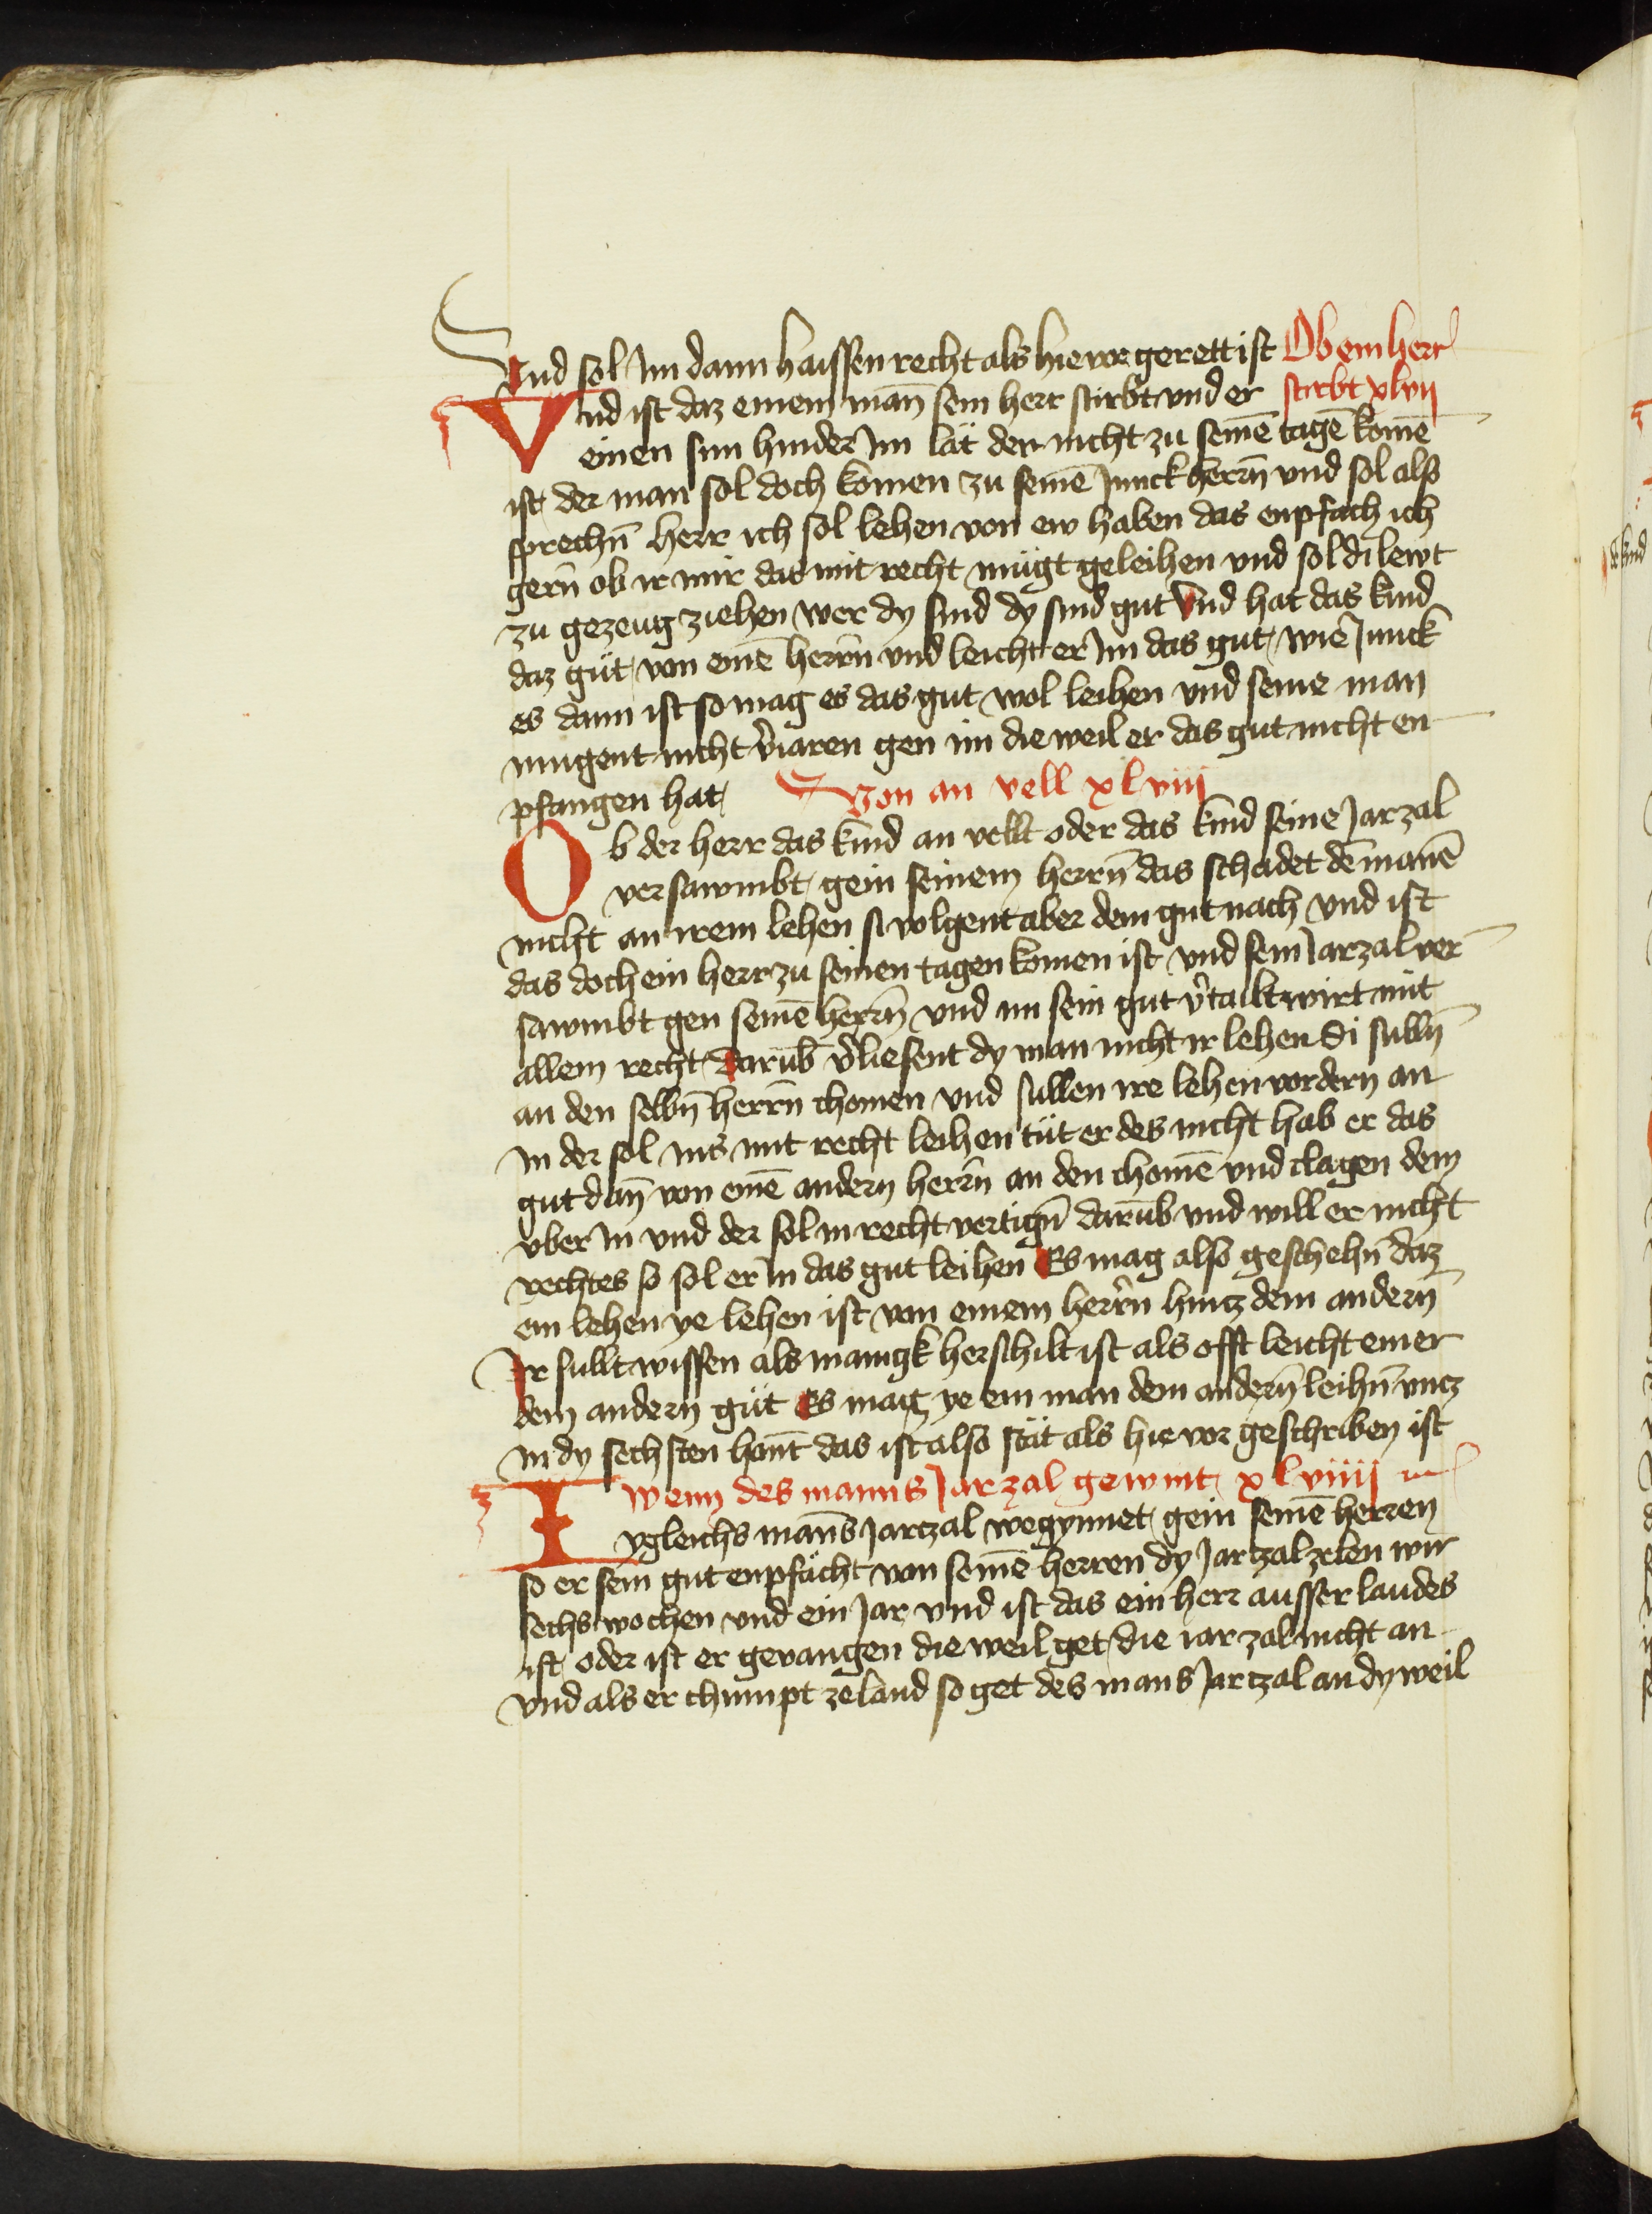 Und sol Im dann haissen recht als hie vor gerett ist Ob ein herr
Vnd ist daz einem man̄ sein herr stirbt vnd er stirbt xlvij
einen sun hinder Im lät der nicht zu seinē tagē komē
ist der man sol doch komen zu seinē Junckherrn̄ vnd sol also
sprechn̄ herr ich sol lehen von ew haben das enpfach ich
gern̄ ob ir mir das mit recht mügt geleihen vnd sol di lewt
zu gezeug ziehen wer dy sind dy sind gut Vnd hat das kind
daz güt von einē herrn̄ vnd leicht er Im das gut wie Junck
es dann ist so mag es das gut wol leihen vnd seine man
mugent nicht v̄iaren gen im die weil er das gut nicht en
pfangen hat Von an vell xlviij
Ob der herr das kind an vellt oder das kind seine Jarzal
versawmbt gein seinem herrn̄ das schadet dē manē
nicht an irem lehen si volgent aber dem gut nach vnd ist
das doch ein herr zu seinen tagen komen ist vnd sein Jarzal ver
sawmbt gen seinē herrn̄ vnd im sein gut v̄tailt wirt mit
allem recht Darūb v̄liesent dy man nicht ir lehen di sulln̄
an den selbn̄ herrn̄ chomen vnd sullen ire lehen vordern an
In der sol ins mit recht leihen tüt er des nicht hab er das
gut dan̄ von einē andern herrn̄ an den chomē vnd clagen dem
vber In vnd der sol in recht vertign̄ darūb vnd will er nicht
rechtes so sol er In das gut leihen Es mag also geschehn̄ daz
ein lehen ye lehen ist von einem herrn̄ hincz dem andern̄
Ir sullt wissen als manigk herschilt ist als offt leicht einer
dem andern güt Es mag ye ein man dem andern̄ leihn̄ vncz
In dy sechsten hant̄ das ist also stät als hie vor geschriben ist
wenn des manns Jarzal gewint xlviiij
Iygleichs man̄s Jarczal wegynnet gein seinē herren
so er sein gut enpfächt von seinē herren dy Jarczal zelen wir
sechs wochen vnd ein Jar vnd ist das ein herr ausser landes
ist oder ist er gevangen die weil get die iarzal nicht an
vnd als er chumpt ze land so get des mans Jarczal an dy weil